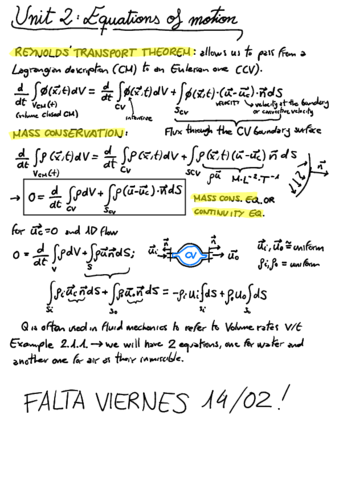 Unit 2: Equations of motion
REYNOLDS' TRANSPORT THEOREM: allows us to pass from a
Lagrangian description (CM) to an Eulerian one (CV).
d/dt ∫ φ(x⃗,t)dV = d/dt ∫ φ(x⃗,t)dV + ∫ φ(x⃗,t)·(u⃗-u⃗c)·n⃗dS
VCM(t) CV SCV VELOCITY velocity of the boundary
(volume closed CM) intensive or convective velocity
MASS CONSERVATION: Flux through the CV boundary surface
d/dt ∫ρ(x⃗,t)dV = d/dt ∫ρ(x⃗,t)dV + ∫ρ(x⃗,t)(u⃗-u⃗c) n⃗ dS
VCM(t) CV SCV ρu⃗ M·L⁻²·T⁻¹ n⃗
→ 0 = d/dt ∫ρdV + ∫ρ(u⃗-u⃗c)·n⃗dS MASS CONS. EQ. OR
CV SCV CONTINUITY EQ.
for u⃗c=0 and 1D flow
0 = d/dt ∫ρdV + ∫ρu⃗n⃗dS; u⃗i n⃗ CV n⃗ u⃗o ui, uo ≅ uniform
V S ρi, ρo = uniform
∫ρi u⃗i n⃗dS + ∫ρu⃗o n⃗dS = -ρi ui∫dS + ρo uo∫dS
Si So Si So
Q is often used in fluid mechanics to refer to Volume rates V/t
Example 2.1.1 → we will have 2 equations, one for water and
another one for air as their inmiscible.
FALTA VIERNES 14/02!